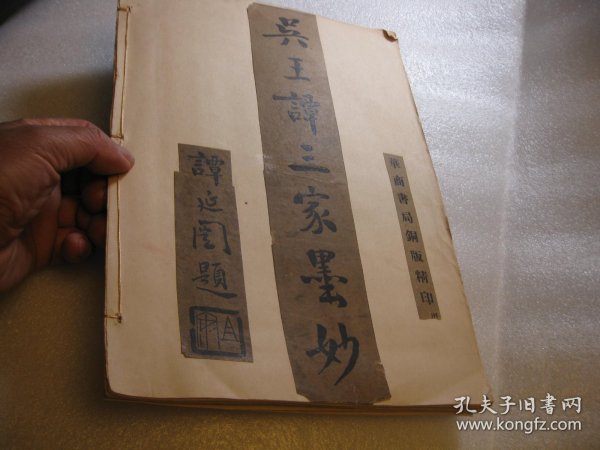 華商書局銅版精印
吳王譚三家墨妙
譚延闓題
孔夫子旧书网
www.kongfz.com